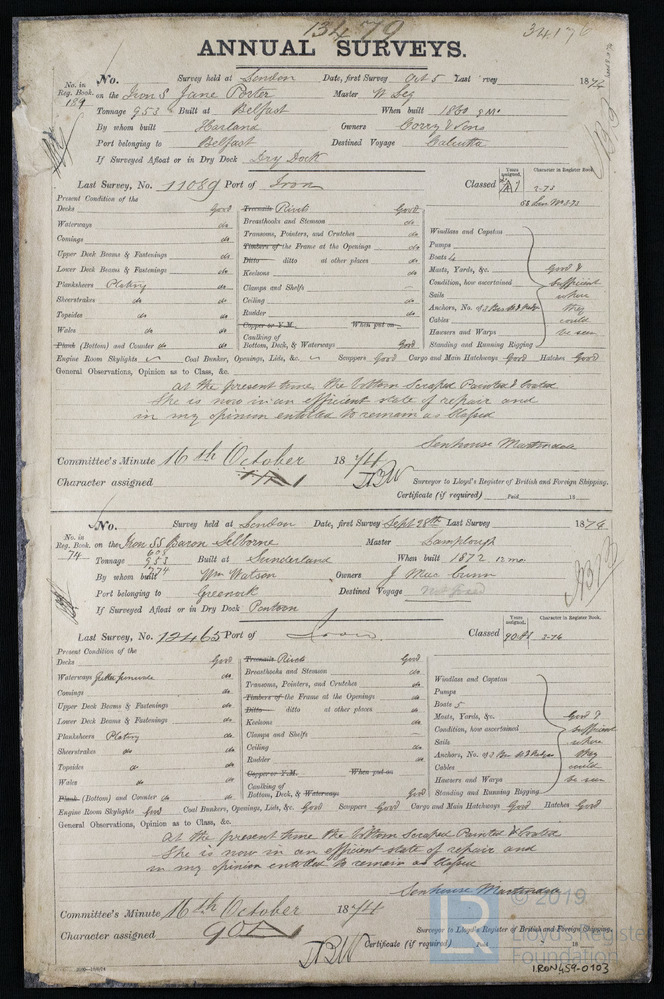 13479
34176
ANNUAL SURVEYS.
No. Survey held at London Date, first Survey Oct 5 Last Survey 1874
No. in Reg. Book. 189 on the Iron S Jane Porter Master W Leg
Tonnage 953 Built at Belfast When built 1860 9 Mo
By whom built Harland Owners Corry & Sons
Port belonging to Belfast Destined Voyage Calcutta
If Surveyed Afloat or in Dry Dock Dry Dock
Last Survey, No. 11089 Port of Iron Classed
Years assigned. Character in Register Book.
A1 2.73
Present Condition of the
Decks Good
Waterways do
Comings do
Upper Deck Beams & Fastenings do
Lower Deck Beams & Fastenings do
Planksheers Plating do
Sheerstrakes do do
Topsides do do
Wales do do
Plank (Bottom) and Counter do do
Treenails Rivets Good
Breasthooks and Stemson do
Transoms, Pointers, and Crutches do
Timbers of the Frame at the Openings do
Ditto ditto at other places do
Keelsons do
Clamps and Shelfs
Ceiling do
Rudder do
Copper or Y.M. When put on
Caulking of Bottom, Deck, & Waterways Good
Windlass and Capstan
Pumps
Boats 4
Masts, Yards, &c.
Condition, how ascertained
Sails
Anchors, No. of 3
Cables
Hawsers and Warps
Standing and Running Rigging
Good & sufficient where they could be seen
Engine Room Skylights Coal Bunker, Openings, Lids, &c. Scuppers Good Cargo and Main Hatchways Good Hatches Good
General Observations, Opinion as to Class, &c.
At the present time the bottom Scraped Painted & Coated
She is now in an efficient state of repair and
in my opinion entitled to remain as Classed
Senhouse Martindale
Committee's Minute 16th October 1874
Character assigned A1
Surveyor to Lloyd's Register of British and Foreign Shipping.
Certificate (if required) Paid 18
No. Survey held at London Date, first Survey Sept 28th Last Survey 1874
No. in Reg. Book. 74 on the Iron SS Baron Selborne Master Lamplough
Tonnage 608 953 774 Built at Sunderland When built 1872 12 mo
By whom built Wm Watson Owners J MacCunn
Port belonging to Greenock Destined Voyage not fixed
If Surveyed Afloat or in Dry Dock Pontoon
Last Survey, No. 12465 Port of Iron Classed
Years assigned. Character in Register Book.
90A1 3-74
Present Condition of the
Decks Good
Waterways do
Comings do
Upper Deck Beams & Fastenings do
Lower Deck Beams & Fastenings do
Planksheers Plating do
Sheerstrakes do do
Topsides do do
Wales do do
Plank (Bottom) and Counter do do
Treenails Rivets Good
Breasthooks and Stemson do
Transoms, Pointers, and Crutches do
Timbers of the Frame at the Openings do
Ditto ditto at other places do
Keelsons do
Clamps and Shelfs
Ceiling do
Rudder do
Copper or Y.M. When put on
Caulking of Bottom, Deck, & Waterways Good
Windlass and Capstan
Pumps
Boats 5
Masts, Yards, &c.
Condition, how ascertained
Sails
Anchors, No. of 3
Cables
Hawsers and Warps
Standing and Running Rigging
Good & sufficient where they could be seen
Engine Room Skylights Good Coal Bunkers, Openings, Lids, &c. Good Scuppers Good Cargo and Main Hatchways Good Hatches Good
General Observations, Opinion as to Class, &c.
At the present time the bottom Scraped Painted & Coated
She is now in an efficient state of repair and
in my opinion entitled to remain as Classed
Senhouse Martindale
Committee's Minute 16th October 1874
Character assigned 90A1
Surveyor to Lloyd's Register of British and Foreign Shipping.
Certificate (if required) Paid 18
© 2019
LR
Lloyd's Register
Foundation
IRON459-0103